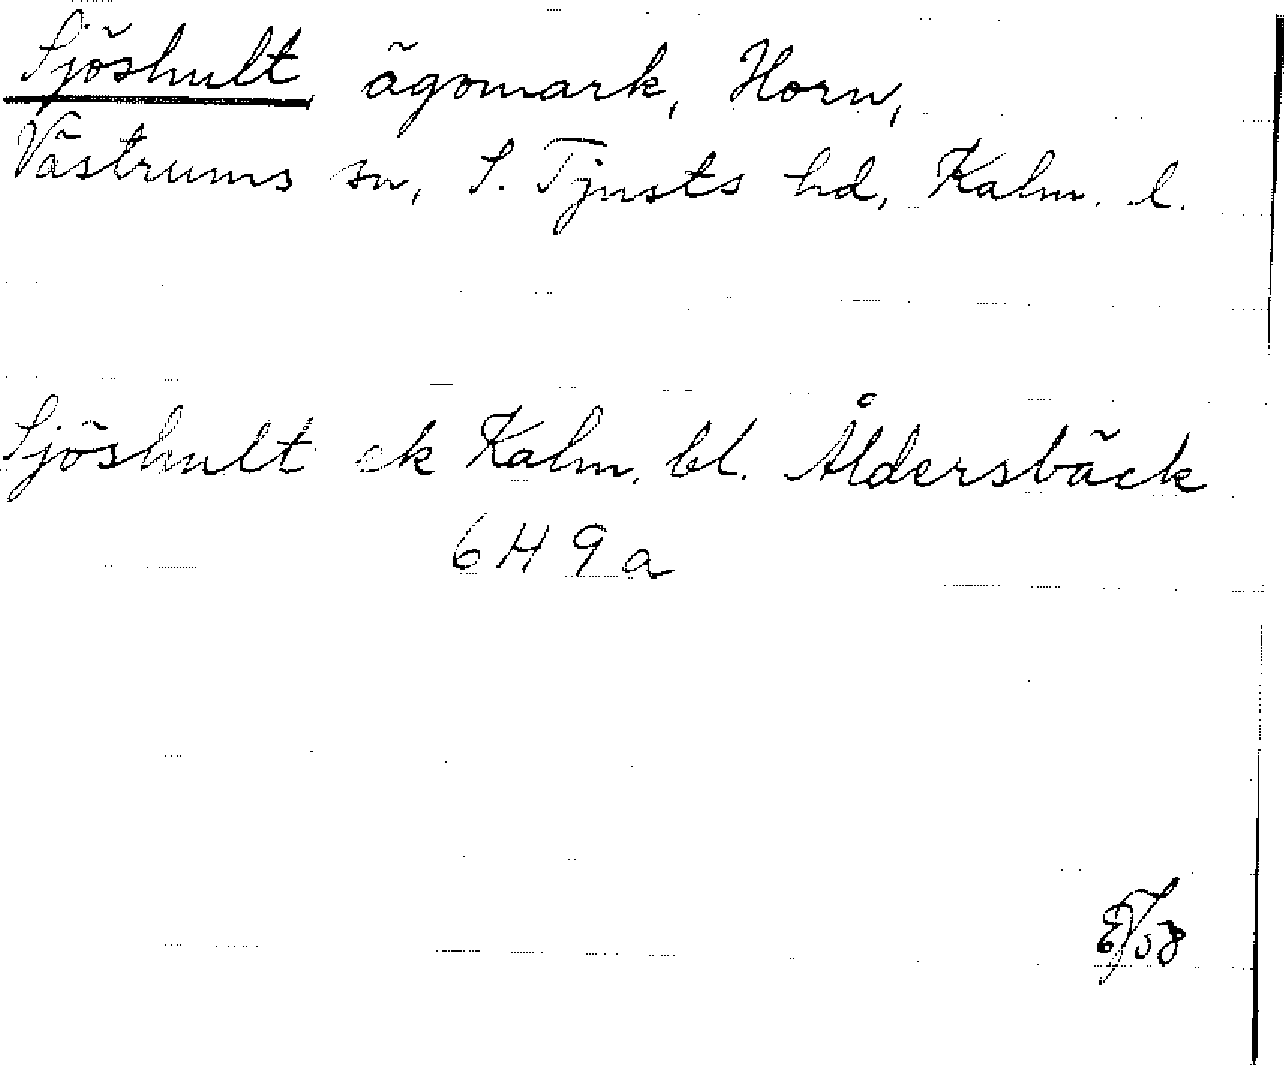 Sjöshult ägomark, Horn,
Västrums sn, S. Tjusts hd, Kalm. l.
Sjöshult ek Kalm. bl. Åldersbäck
6H 9a